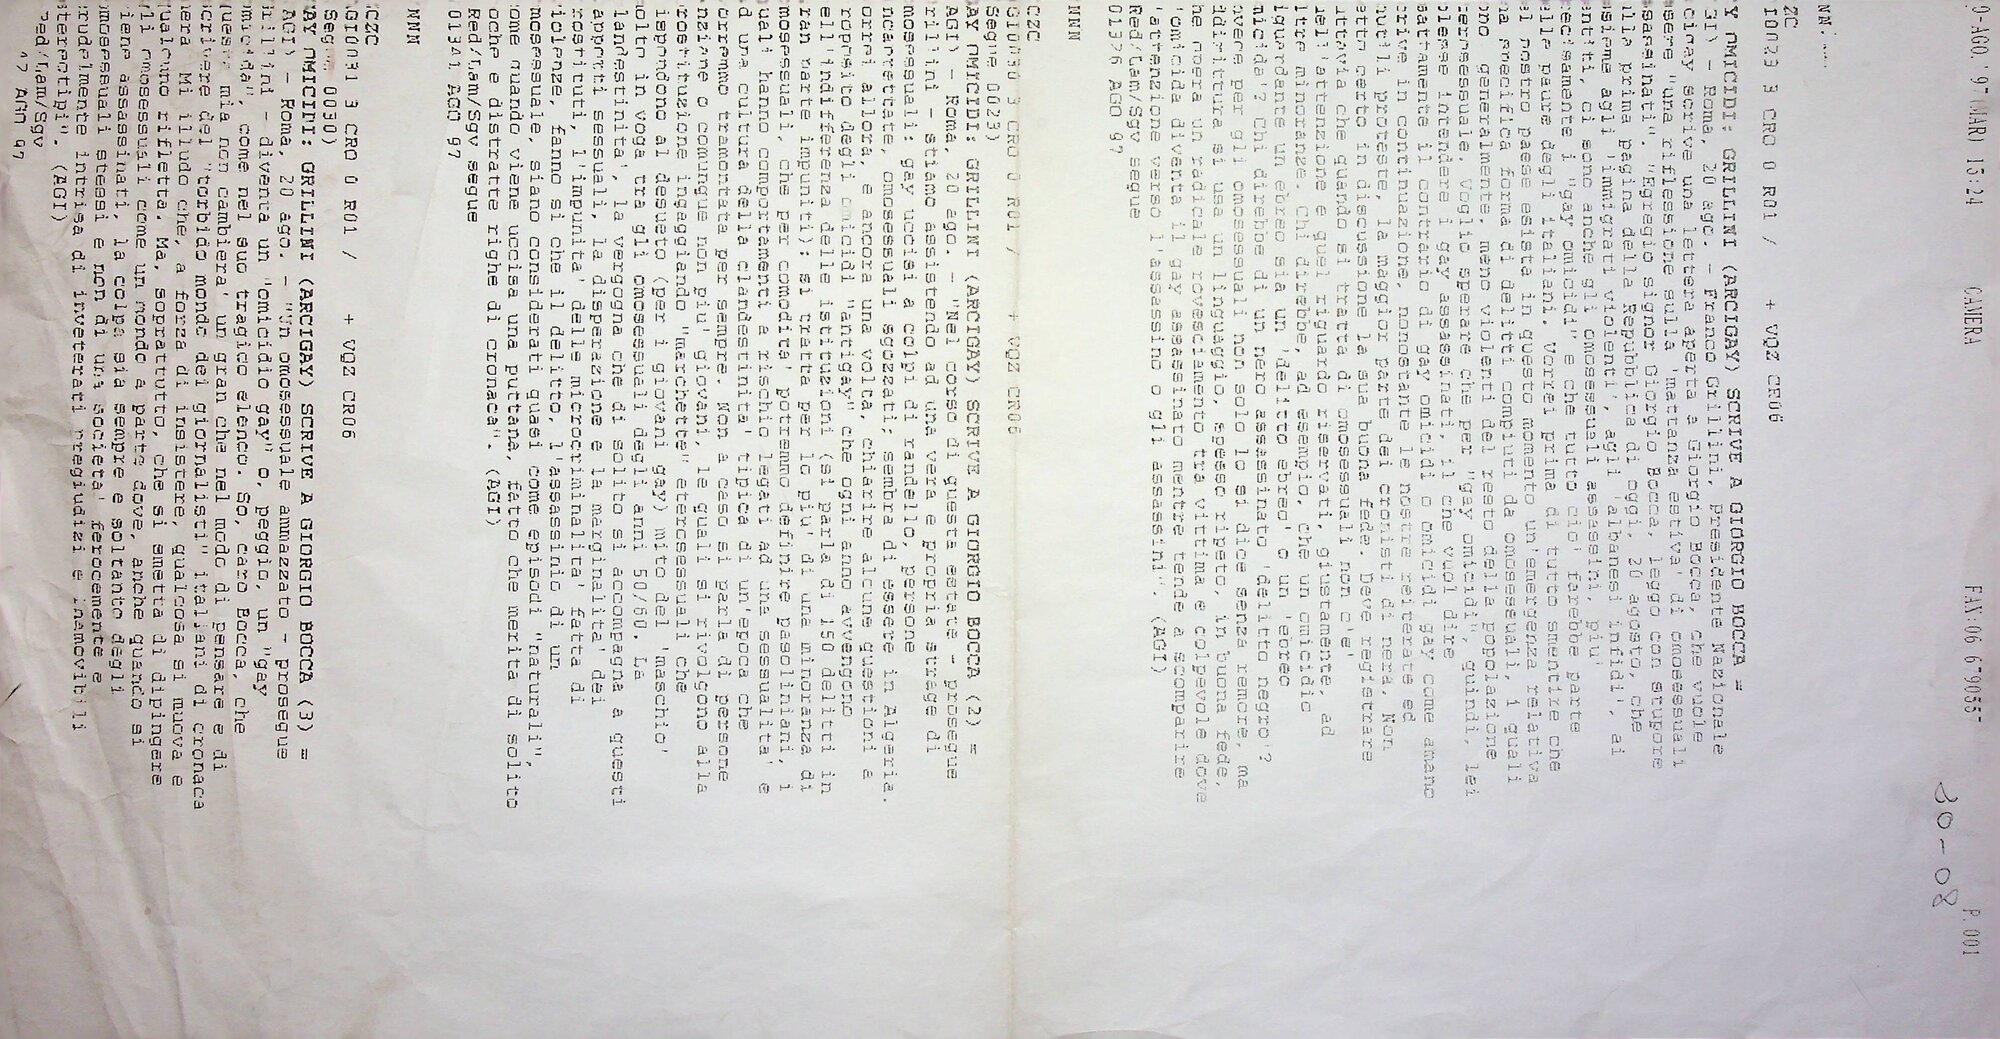 0-AGO.'97(MAR) 15:24 CAMERA FAX:06 679055 P.001
20-08
NN
ZC
I0023 3 CRO 0 R01 / + VQZ CR06
Y OMICIDI: GRILLINI (ARCIGAY) SCRIVE A GIORGIO BOCCA =
GI) - Roma, 20 ago. - Franco Grillini, presidente Nazionale
cigay scrive una lettera aperta a Giorgio Bocca, che vuole
sere "una riflessione sulla 'mattanza estiva di omosessuali
sassinati". "Egregio signor Giorgio Bocca, leggo con stupore
ulla prima pagina della Repubblica di oggi, 20 agosto, che
sieme agli 'immigrati violenti', agli 'albanesi infidi', ai
entiti, ci sono anche gli omosessuali assassini, piu'
ecisamente i "gay omicidi" e che tutto cio' farebbe parte
elle paure degli italiani. Vorrei prima di tutto smentire che
l nostro paese esista in questo momento un'emergenza relativa
a specifica forma di delitti compiuti da omosessuali, i quali
ono generalmente meno violenti del resto della popolazione
terosessuale. Voglio sperare che per "gay omicidi", quindi, lei
olesse intendere i gay assassinati, il che vuol dire
sattamente il contrario di gay omicidi o omicidi gay come amano
crive in continuazione, nonostante le nostre reiterate ed
nutili proteste, la maggior parte dei cronisti di nera. Non
etto certo in discussione la sua buona fede. Deve registrare
uttavia che quando si tratta di omosessuali non c'e'
ell'attenzione e quel riguardo riservati, giustamente, ad
ltre minoranze. Chi direbbe, ad esempio, che un omicidio
iguardante un ebreo sia un 'delitto ebreo' o un 'ebreo
micida'? Chi direbbe di un nero assassinato 'delitto negro'?
nvece per gli omosessuali non solo lo si dice senza remore, ma
ddirittura si usa un linguaggio, spesso ripeto, in buona fede,
he opera un radicale rovesciamento tra vittima e colpevole dove
'omicida diventa il gay assassinato mentre tende a scomparire
'attenzione verso l'assassino o gli assassini". (AGI)
Red/Lam/Sgv segue
01326 AGO 97
NNN
CZC
GI0030 3 CRO 0 R01 / + VQZ CR06
Segue 0023)
AY OMICIDI: GRILLINI (ARCIGAY) SCRIVE A GIORGIO BOCCA (2) =
AGI) - Roma, 20 ago. - "Nel corso di questa estate - prosegue
rillini - stiamo assistendo ad una vera e propria strage di
mosessuali: gay uccisi a colpi di randello, persone
ncaprettate, omosessuali sgozzati; sembra di essere in Algeria.
orrei allora, e ancora una volta, chiarire alcune questioni a
roposito degli omicidi "antigay" che ogni anno avvengono
ell'indifferenza delle istituzioni (si parla di 150 delitti in
ran parte impuniti): si tratta per lo piu' di una minoranza di
mosessuali, che per comodita' potremmo definire pasoliniani, i
uali hanno comportamenti a rischio legati ad una sessualita' e
d una cultura della clandestinita' tipica di un'epoca che
orremmo tramontata per sempre. Non a caso si parla di persone
nziane o comunque non piu' giovani, le quali si rivolgono alla
rostituzione ingaggiando "marchette" eterosessuali che
ispondono al desueto (per i giovani gay) mito del 'maschio'
olto in voga tra gli omosessuali degli anni 50/60. La
landestinita', la vergogna che di solito si accompagna a questi
apporti sessuali, la disperazione e la marginalita' dei
rostituti, l'impunita' delle microcriminalita' fatta di
iolenze, fanno si che il delitto, l'assassinio di un
mosessuale, siano considerati quasi come episodi "naturali",
ome quando viene uccisa una puttana, fatto che merita di solito
oche e distratte righe di cronaca". (AGI)
Red/Lam/Sgv segue
01341 AGO 97
NNN
CZC
GI0031 3 CRO 0 R01 / + VQZ CR06
Segue 0030)
AY OMICIDI: GRILLINI (ARCIGAY) SCRIVE A GIORGIO BOCCA (3) =
AGI) - Roma, 20 ago. - "Un omosessuale ammazzato - prosegue
rillini - diventa un "omicidio gay" o, peggio, un "gay
omicida", come nel suo tragico elenco. So, caro Bocca, che
questa mia non cambiera' un gran che nel modo di pensare e di
crivere del "torbido mondo dei giornalisti" italiani di cronaca
era. Mi illudo che, a forza di insistere, qualcosa si muova e
ualcuno rifletta. Ma, sopratutto, che si smetta di dipingere
li omosessuali come un mondo a parte dove, anche quando si
iene assassinati, la colpa sia sempre e soltanto degli
omosessuali stessi e non di una societa' ferocemente e
crudelmente intrisa di inveterati pregiudizi e inamovibili
stereotipi". (AGI)
Red/Lam/Sgv
AGO 97